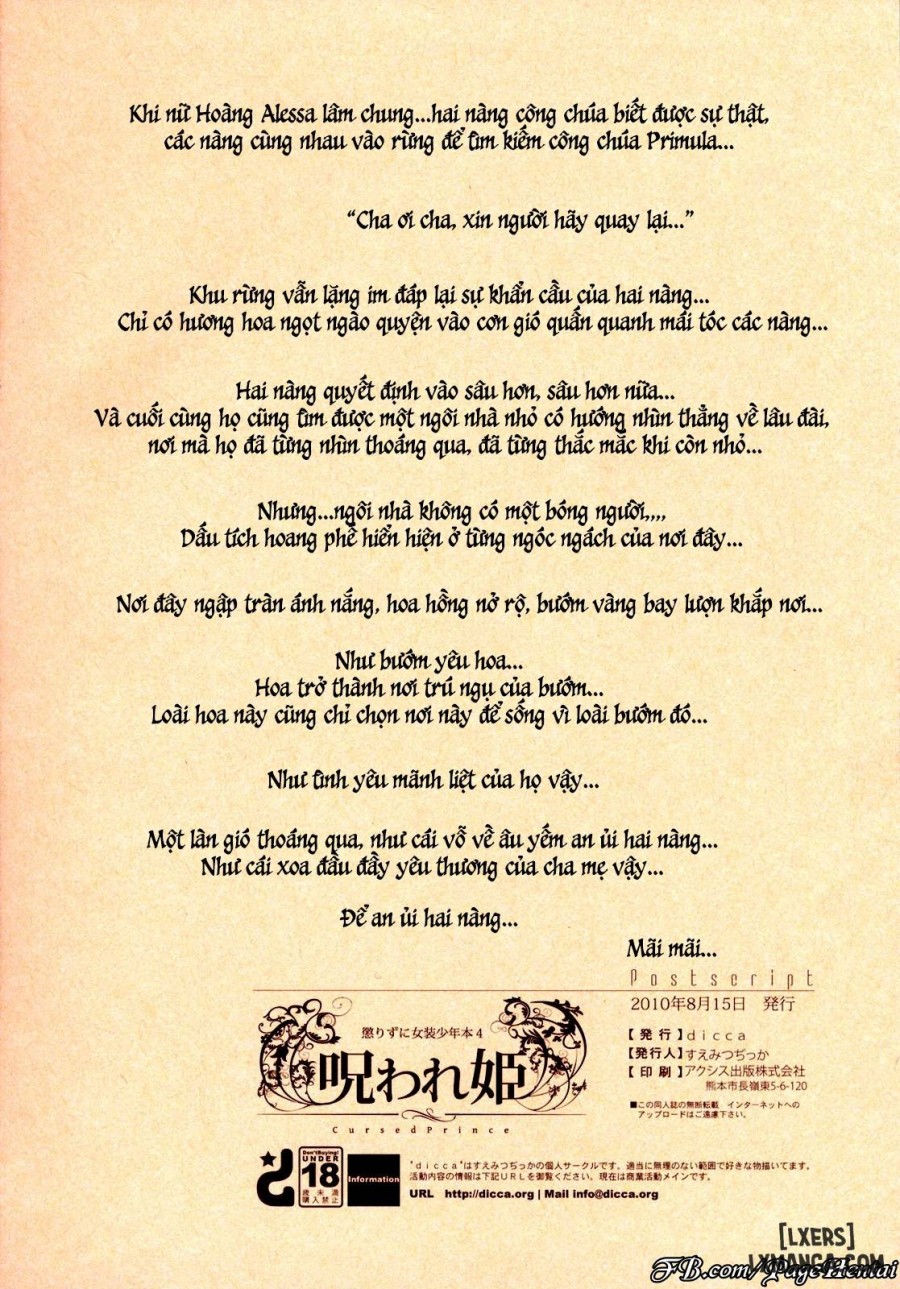 Khi nữ Hoàng Alessa lâm chung...hai nàng công chúa biết được sự thật,
các nàng cùng nhau vào rừng để tìm kiếm công chúa Primula...
“Cha ơi cha, xin người hãy quay lại...”
Khu rừng vẫn lặng im đáp lại sự khẩn cầu của hai nàng...
Chỉ có hương hoa ngọt ngào quyện vào cơn gió quấn quanh mái tóc các nàng...
Hai nàng quyết định vào sâu hơn, sâu hơn nữa...
Và cuối cùng họ cũng tìm được một ngôi nhà nhỏ có hướng nhìn thẳng về lâu đài,
nơi mà họ đã từng nhìn thoáng qua, đã từng thắc mắc khi còn nhỏ...
Nhưng...ngôi nhà không có một bóng người,,,,
Dấu tích hoang phế hiển hiện ở từng ngóc ngách của nơi đây...
Nơi đây ngập tràn ánh nắng, hoa hồng nở rộ, bướm vàng bay lượn khắp nơi...
Như bướm yêu hoa...
Hoa trở thành nơi trú ngụ của bướm...
Loài hoa này cũng chỉ chọn nơi này để sống vì loài bướm đó...
Như tình yêu mãnh liệt của họ vậy...
Một làn gió thoáng qua, như cái vỗ về âu yếm an ủi hai nàng...
Như cái xoa đầu đầy yêu thương của cha mẹ vậy...
Để an ủi hai nàng...
Mãi mãi...
Postscript
2010年8月15日 発行
懲りずに女装少年本4
呪われ姫
CursedPrince
【発行】dicca
【発行人】すえみつぢっか
【印刷】アクシス出版株式会社
熊本市長嶺東5-6-120
■この同人誌の無断転載 インターネットへの
アップロードはご遠慮下さい。
Don't Buying!
UNDER
18
歳未満
購入禁止
Information
"dicca"はすえみつぢっかの個人サークルです。適当に無理のない範囲で好きな物描いてます。
活動内容の情報は下記URLを御覧ください。現在は商業活動メインです。
URL http://dicca.org | Mail info@dicca.org
[LXERS]
LXMANGA.COM
FB.com/PageHentai